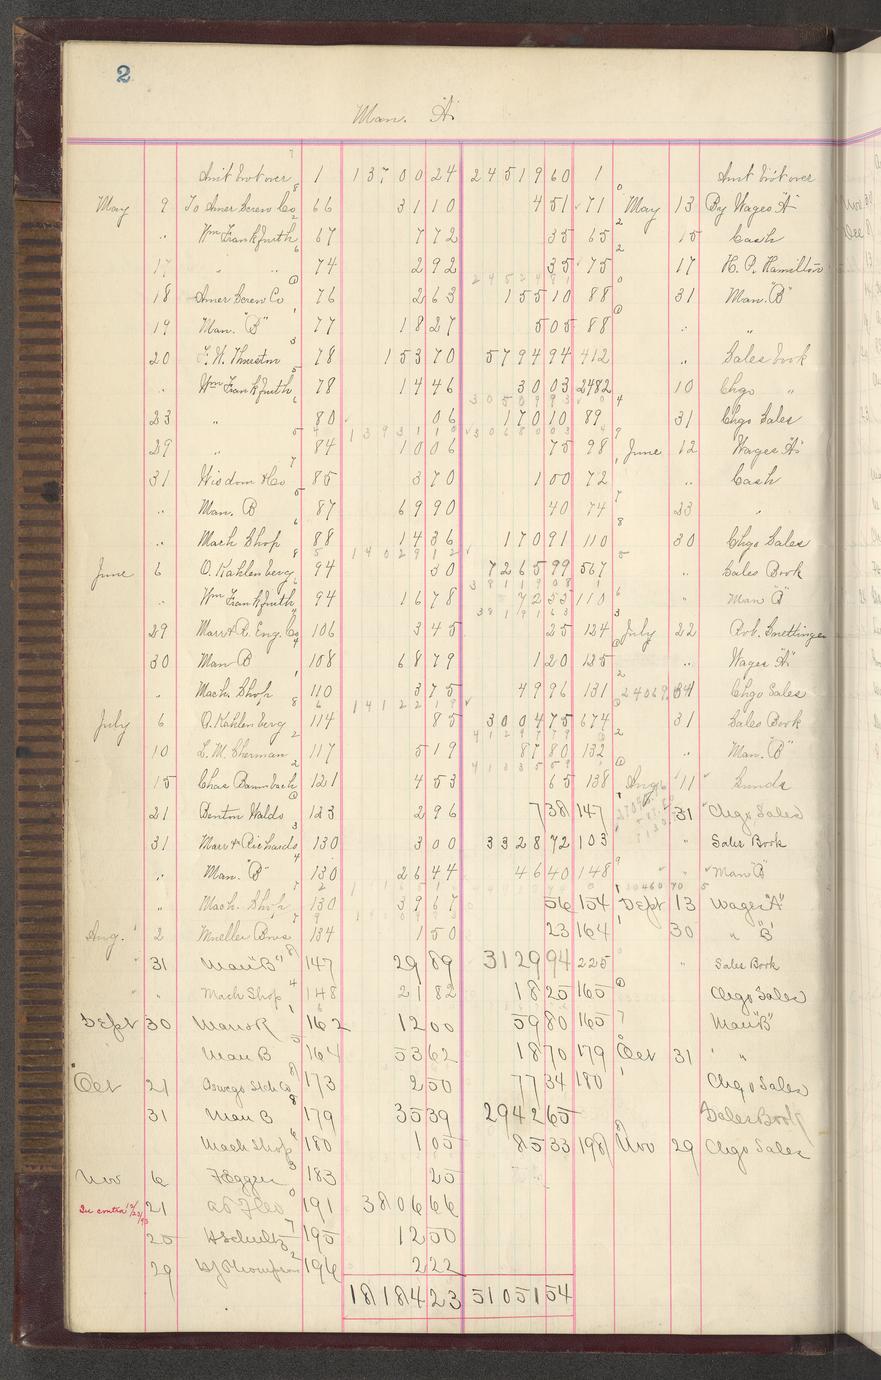 2
Man. "A"
Amt brot over 1 1370024 2451960 1 Amt brot over
May 9 To Amer Screw Co 66 3110 451 71 May 13 By Wages "A"
" Wm Frankfurth 67 772 35 65 " 15 Cash
17 " " 74 292 35 75 17 H. P. Hamilton
18 Amer Screw Co 76 263 15510 88 31 Man. "B"
19 Man. "B" 77 1827 505 88 " "
20 F. H. Thurston 78 15370 579494 412 " Sales book
" Wm Frankfurth 78 1446 3003 2482 10 Chgo "
23 " 80 06 17010 89 31 Chgo Sales
29 " 84 1006 75 98 June 12 Wages "A"
31 Wisdom & Co 85 370 100 72 " Cash
" Man. B 87 6990 40 74 23 "
" Mach Shop 88 1436 17091 110 30 Chgo Sales
June 6 O. Kahlenberg 94 30 726599 567 " Sales Book
" Wm Frankfurth 94 1678 7253 110 " Man "B"
29 Marr & R. Eng. Co 106 345 25 124 July 22 Rob.
30 Man B 108 6879 120 125 " Wages "A"
" Mach. Shop 110 375 4996 131 Chgo Sales
July 6 O. Kahlenberg 114 85 300475 674 31 Sales Book
10 L. M. Sherman 117 519 8780 132 " Man. "B"
15 Chas Baumbach 121 453 65 138 Aug 11 Sunds
21 Benton Waldo 123 296 738 147 31 Chgo Sales
31 Marr & Richards 130 300 332872 103 " Sales Book
" Man. "B" 130 2644 4640 148 " Man "B"
" Mach. Shop 130 3967 56 154 Sept 13 Wages "A"
Aug. 2 Mueller Bros 134 150 23 164 30 " "B"
" 31 Man "B" 147 2989 312994 225 " Sales Book
" " Mach Shop 148 2182 1825 165 Chgo Sales
Sept 30 Marr & R 162 1200 5980 165 Man "B"
Man B 164 5362 1870 179 Oct 31 " "
Oct 21 Oswego Stch Co 173 250 7734 180 Chgo Sales
31 Man B 179 3539 294265 Sales Book
Mach Shop 180 105 8533 198 Nov 29 Chgo Sales
Nov 6 F Eggers 183 25
See contra 21 191 380666
25 H Schultz 195 1250
29 Thompson 196 222
1818423 5105154